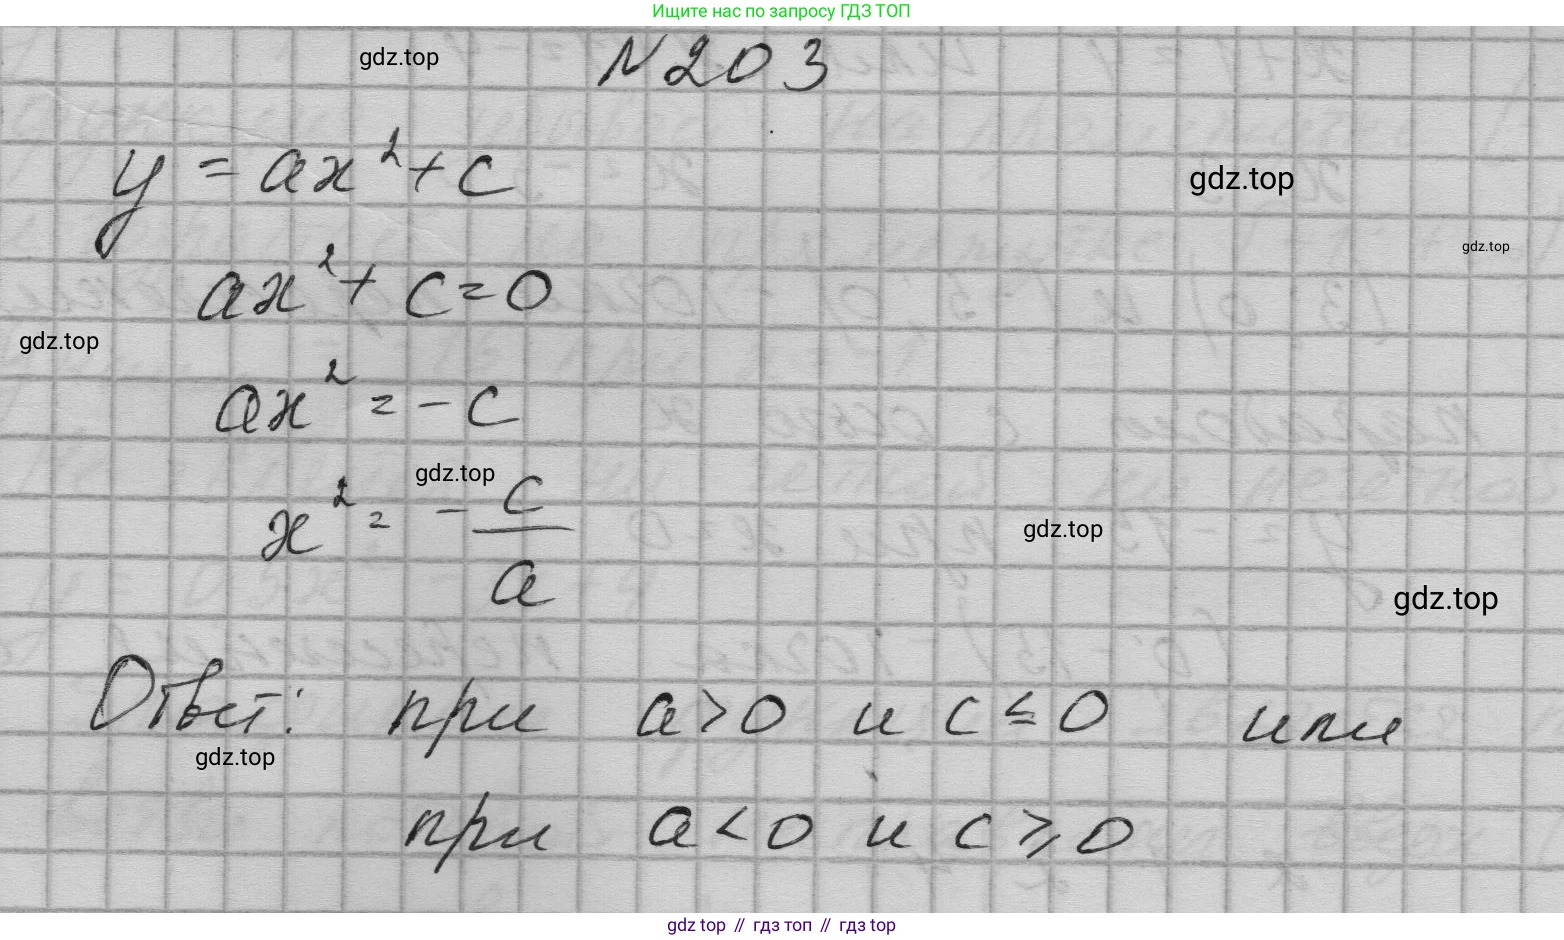 Ищите нас по запросу ГДЗ ТОП
N 203
gdz.top
y = ax² + c
gdz.top
gdz.top
ax² + c = 0
gdz.top
ax² = - c
gdz.top
x² = - c/a
gdz.top
gdz.top
Ответ: при a > 0 и c ≤ 0 или
gdz.top
при a < 0 и c ⩾ 0
gdz top // гдз топ // gdz top